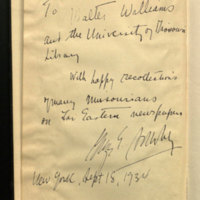 To Walter Williams
and the University of Missouri
Library
With happy recollections
of many Missourians
on Far Eastern newspapers
New York, Sept 18, 1934